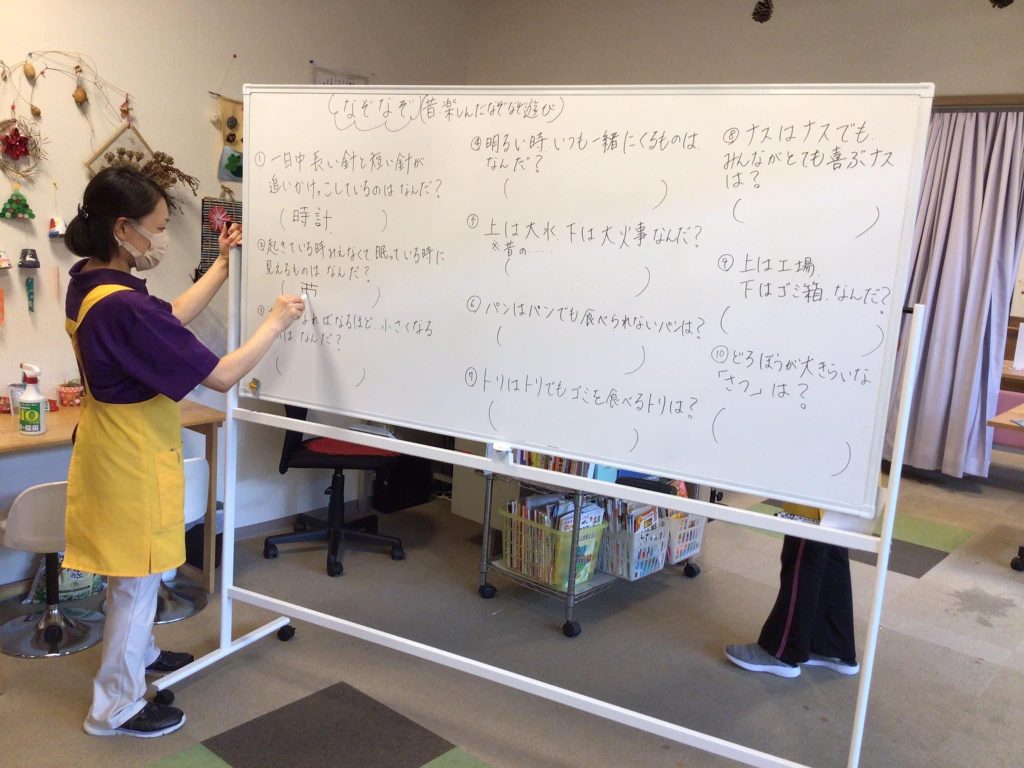 なぞなぞ (昔楽しんだなぞなぞ遊び)
① 一日中、長い針と短い針が
追いかけっこしているのは、なんだ?
(時計)
②起きている時みえなくて、眠っている時に
見えるものは なんだ?
なればなるほど、小さくなる
は、なんだ?
④ 明るい時 いつも一緒にくるものは、
なんだ?
⑤ 上は大水 下は大火事 なんだ?
※昔の……
⑥ パンはパンでも食べられないパンは?
⑦ トリはトリでもゴミを食べるトリは?
⑧ ナスはナスでも、
みんながとても喜ぶナス
は?
⑨ 上は工場、
下はゴミ箱、なんだ?
⑩ どろぼうが大きらいな
「さつ」は?